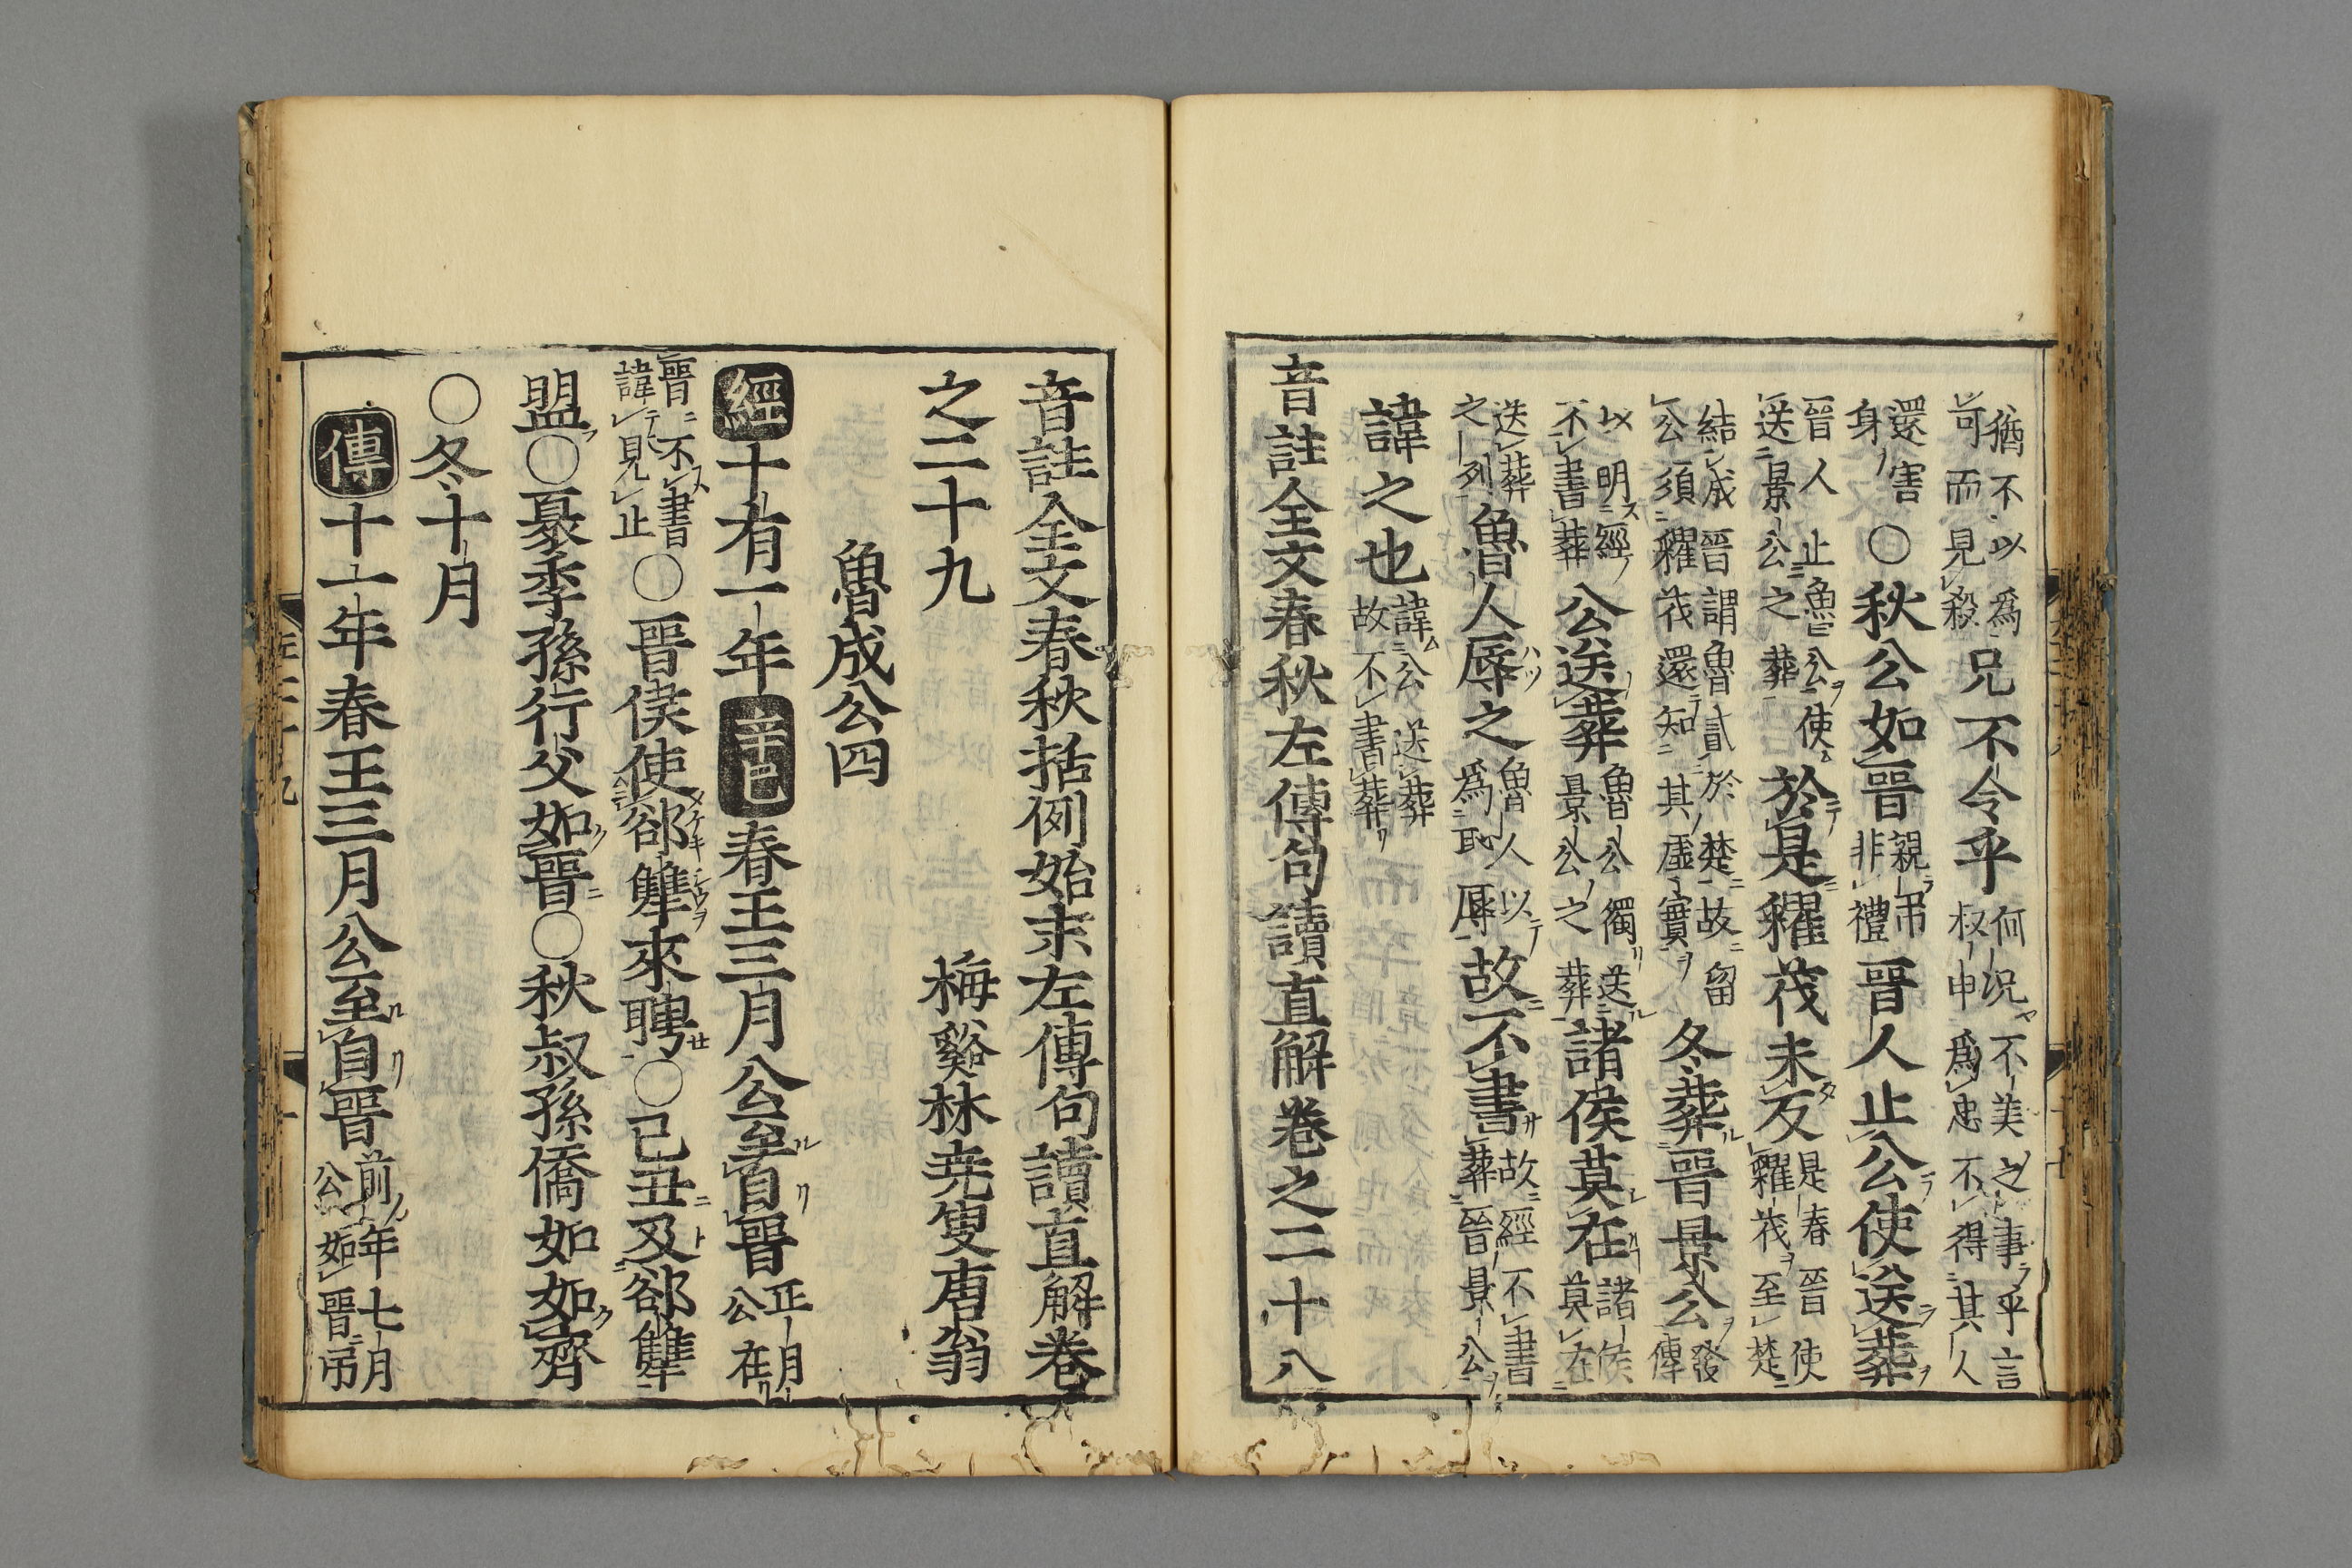 猶不以爲可而見殺兄不令乎何况不美之事乎言叔申爲忠不得其人
還害身○秋公如晉親吊非禮晉人止公使送葬
晉人止魯公使送景公之葬於是糴茷未反是春晉使糴茷至楚
結成晉謂魯貳於楚故留公須糴茷還知其虛實冬葬晉景公發傳
以明經不書葬公送葬魯公獨送景公之葬諸侯莫在諸侯莫在
送葬之列魯人辱之魯人以爲恥辱故不書故經不書葬晉景公
諱之也諱公送葬故不書葬
音註全文春秋左傳句讀直解巻之二十八
音註全文春秋括例始末左傳句讀直解卷
之二十九　梅谿林尭叟唐翁
魯成公四
經十有一年辛巳春王三月公至自晉正月公在
晉不書諱見止○晉侯使郤犨來聘○己丑及郤犨
盟○夏季孫行父如晉○秋叔孫僑如如齊
○冬十月
傳十一年春王三月公至自晉前年七月公如晉吊